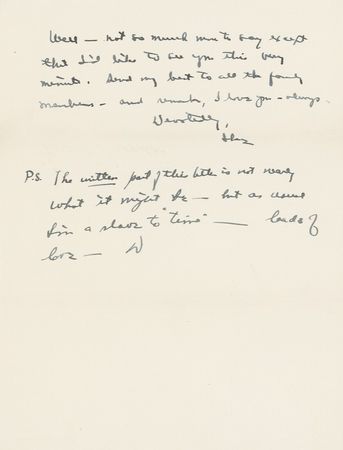 Well — not so much more to say except
that I'd like to see you this very
minute. Send my best to all the family
members — and remember, I love you — always.
Devotedly,
P.S. The written part of this letter is not nearly
what it might be — but as usual
I'm a slave to "time" — loads of
love — D